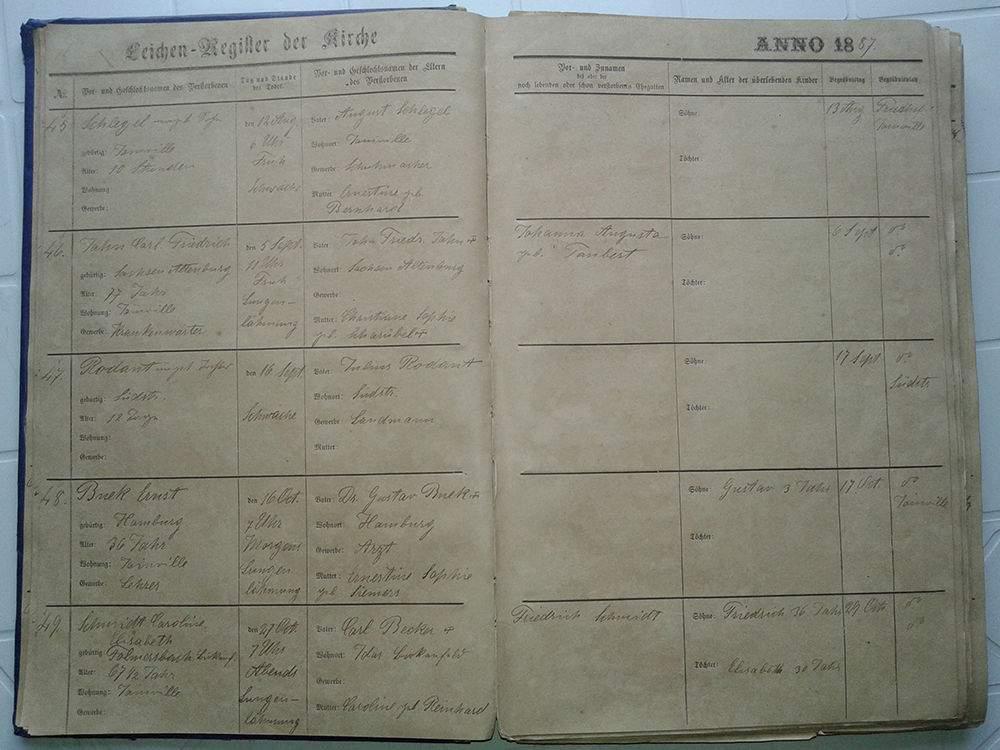 Leichen-Register der Kirche
No.
Vor- und Geschlechtsnamen des Verstorbenen
Tag und Stunde des Todes
Vor- und Geschlechtsnamen der Eltern des Verstorbenen
45.
Schlegel
gebürtig: Joinville
Alter: 10 Stunden
Wohnung:
Gewerbe:
den 12 Aug
6 Uhr
Früh
Schwäche
Vater: August Schlegel
Wohnort: Joinville
Gewerbe: Schuhmacher
Mutter: Ernestine geb.
Bernhard
46.
Jahn Carl Friedrich
gebürtig: Sachsen Altenburg
Alter: 77 Jahr
Wohnung: Joinville
Gewerbe: Krankenwärter
den 5 Sept.
11 Uhr
Früh
Lungen-
lähmung
Vater: Joh. Friedr. Jahn +
Wohnort: Sachsen Altenburg
Gewerbe:
Mutter: Christiane Sophie
geb.
47.
Rodant
gebürtig: Südstr.
Alter: 12 Tage
Wohnung:
Gewerbe:
den 16 Sept
Schwäche
Vater: Julius Rodant
Wohnort: Südstr.
Gewerbe: Landmann
Mutter:
48.
Buek Ernst
gebürtig: Hamburg
Alter: 36 Jahr
Wohnung: Joinville
Gewerbe: Lehrer
den 16 Oct.
7 Uhr
Morgens
Lungen
lähmung
Vater: Dr. Gustav Buek +
Wohnort: Hamburg
Gewerbe: Arzt
Mutter: Ernestine Sophie
geb. Siemers
49.
Schmidt Caroline
Elisabeth
gebürtig:
Alter: 67 1/2 Jahr
Wohnung: Joinville
Gewerbe:
den 27 Oct.
7 Uhr
Abends
Lungen-
lähmung
Vater: Carl Becker +
Wohnort: Idar Birkenfeld
Gewerbe:
Mutter: Caroline geb. Reinhard
ANNO 1887.
Vor- und Zunamen
des oder der
noch lebenden oder schon verstorbenen Ehegatten
Namen und Alter der überlebenden Kinder
Begräbnisstag
Begräbnissort
Söhne:
Töchter:
13 Aug
Friedhof
Joinville
Johanna Augusta
geb. Taubert
Söhne:
Töchter:
6 Sept
do
do
Söhne:
Töchter:
17 Sept
do
Südstr.
Söhne: Gustav 3 Jahr
Töchter:
17 Oct
do
Joinville
Friedrich Schmidt
Söhne: Friedrich 36 Jahr
Töchter: Elisabeth 30 Jahr
29 Oct.
do
do